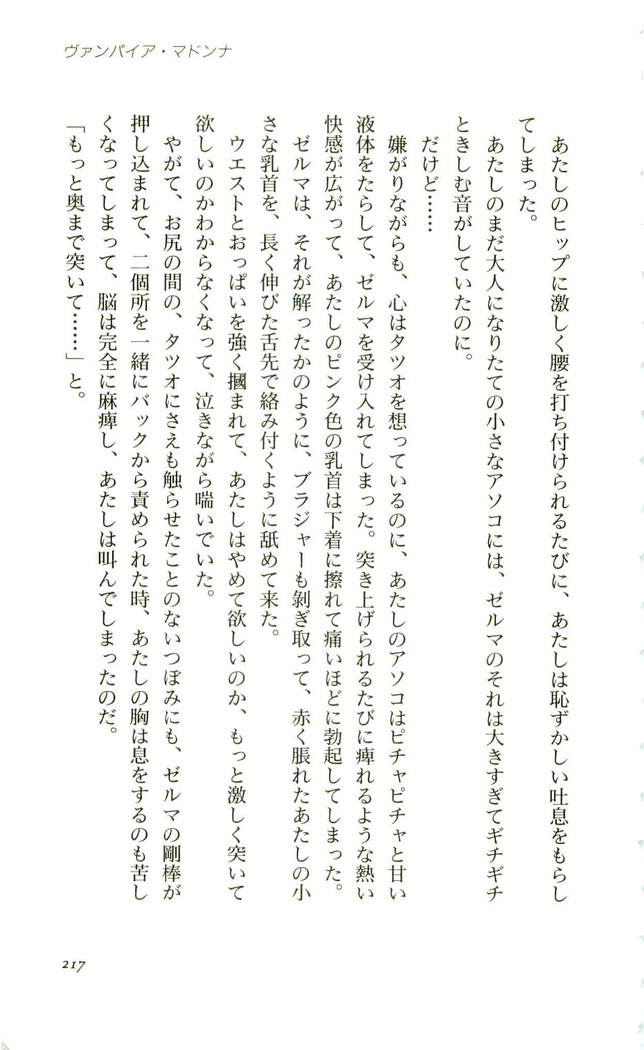 ヴァンパイア・マドンナ
あたしのヒップに激しく腰を打ち付けられるたびに、あたしは恥ずかしい吐息をもらし
てしまった。
あたしのまだ大人になりたての小さなアソコには、ゼルマのそれは大きすぎてギチギチ
ときしむ音がしていたのに。
だけど……
嫌がりながらも、心はタツオを想っているのに、あたしのアソコはピチャピチャと甘い
液体をたらして、ゼルマを受け入れてしまった。突き上げられるたびに痺れるような熱い
快感が広がって、あたしのピンク色の乳首は下着に擦れて痛いほどに勃起してしまった。
ゼルマは、それが解ったかのように、ブラジャーも剥ぎ取って、赤く脹れたあたしの小
さな乳首を、長く伸びた舌先で絡み付くように舐めて来た。
ウエストとおっぱいを強く摑まれて、あたしはやめて欲しいのか、もっと激しく突いて
欲しいのかわからなくなって、泣きながら喘いでいた。
やがて、お尻の間の、タツオにさえも触らせたことのないつぼみにも、ゼルマの剛棒が
押し込まれて、二個所を一緒にバックから責められた時、あたしの胸は息をするのも苦し
くなってしまって、脳は完全に麻痺し、あたしは叫んでしまったのだ。
「もっと奥まで突いて……」と。
217